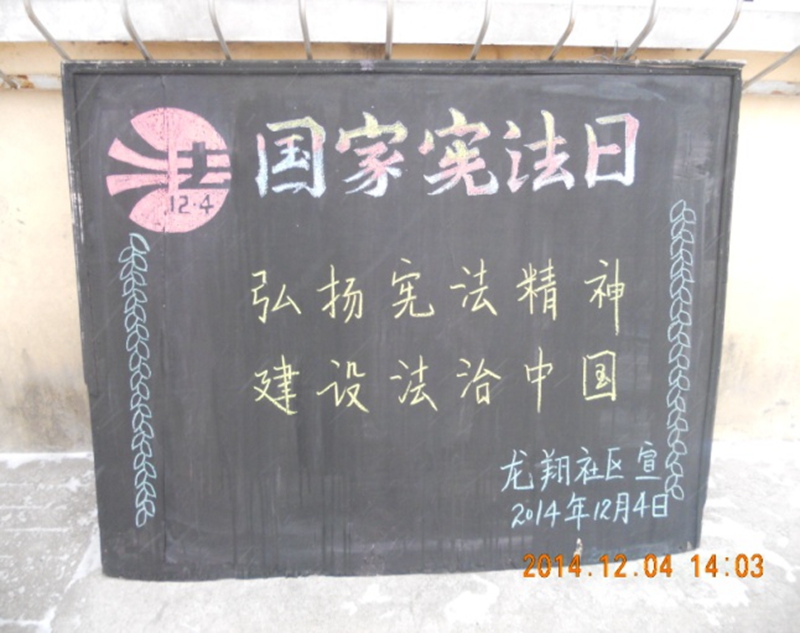 法
12·4
国家宪法日
弘扬宪法精神
建设法治中国
龙翔社区宣
2014年12月4日
2014.12.04 14:03